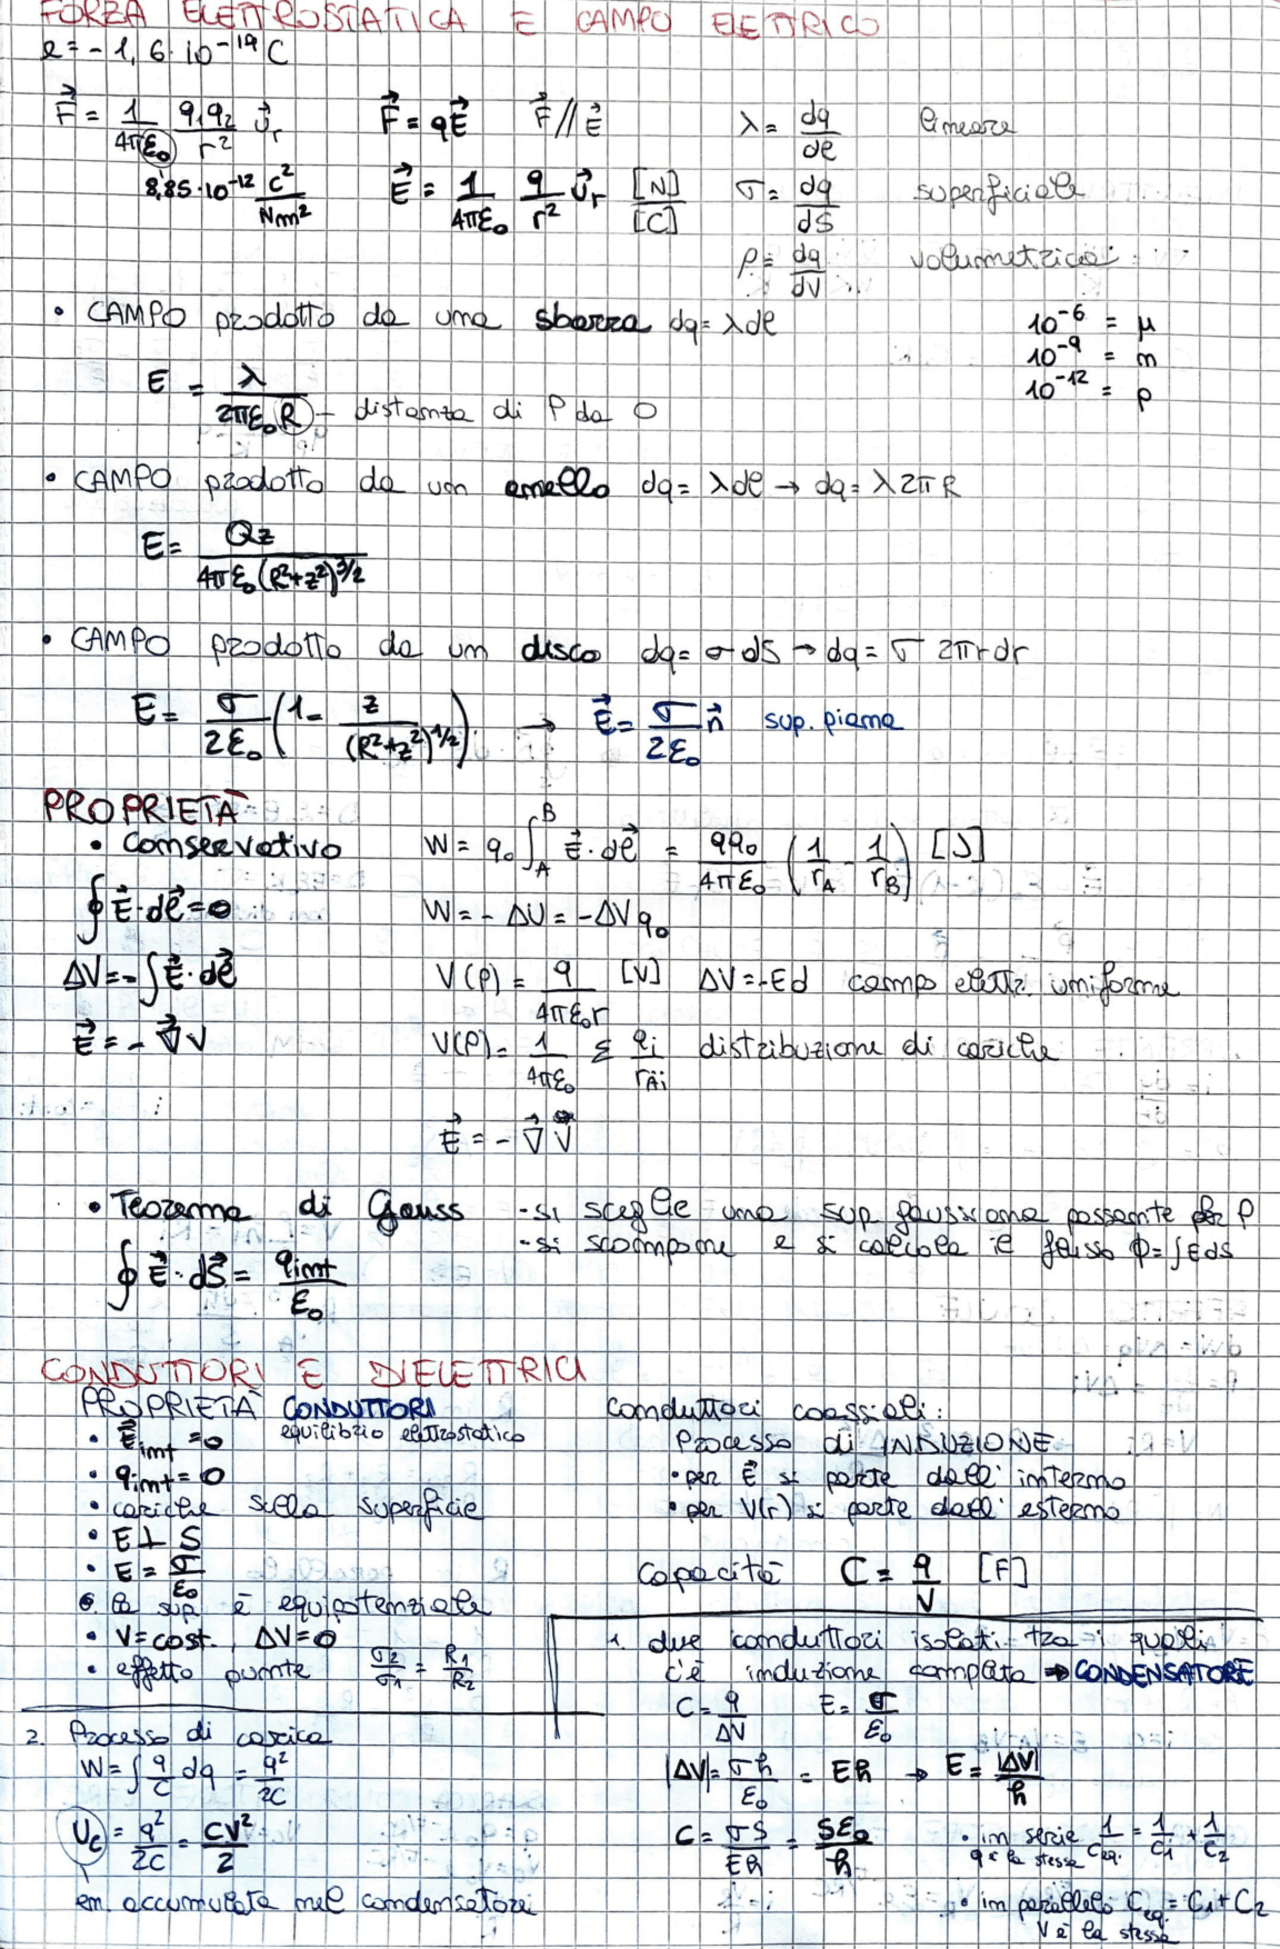 FORZA ELETTROSTATICA E CAMPO ELETTRICO
e = -1,6·10⁻¹⁹ C
F⃗ = 1/(4πε₀) q₁q₂/r² u⃗r    F⃗ = qE⃗    F⃗ // E⃗    λ = dq/dℓ    lineare
8,85·10⁻¹² C²/Nm²    E⃗ = 1/(4πε₀) q/r² u⃗r [N]/[C]    σ = dq/dS    superficiale
ρ = dq/dV    volumetrica
• CAMPO prodotto da una sbarra dq = λdℓ
10⁻⁶ = μ
10⁻⁹ = n
10⁻¹² = p
E = λ/(2πε₀R) – distanza di P da O
• CAMPO prodotto da un anello dq = λdℓ → dq = λ2πR
E = Qz/(4πε₀(R²+z²)^3/2)
• CAMPO prodotto da un disco dq = σdS → dq = σ 2πrdr
E = σ/(2ε₀) (1 - z/(R²+z²)^1/2) → E⃗ = σ/(2ε₀) n⃗ sup. piana
PROPRIETÀ
• Conservativo    W = q₀ ∫_A^B E⃗·dℓ⃗ = qq₀/(4πε₀) (1/r_A - 1/r_B) [J]
∮E⃗·dℓ⃗ = 0    W = -ΔU = -ΔVq₀
ΔV = -∫E⃗·dℓ⃗    V(P) = q/(4πε₀r) [V]    ΔV = -Ed campo elettr. uniforme
E⃗ = -∇⃗V    V(P) = 1/(4πε₀) Σ qi/rAi distribuzione di cariche
E⃗ = -∇⃗V⃗
• Teorema di Gauss    - si sceglie una sup. gaussiana passante per P
- si scompone e si calcola il flusso ϕ = ∫EdS
∮E⃗·dS⃗ = qint/ε₀
CONDUTTORI E DIELETTRICI
PROPRIETÀ CONDUTTORI
equilibrio elettrostatico
• E⃗int = 0
• qint = 0
• cariche sulla superficie
• E⊥S
• E = σ/ε₀
• la sup. è equipotenziale
• V = cost., ΔV = 0
• effetto punte    σ₂/σ₁ = R₁/R₂
conduttori coassiali:
Processo di INDUZIONE
• per E⃗ si parte dall'interno
• per V(r) si parte dall'esterno
capacità C = q/V [F]
1. due conduttori isolati tra i quali
c'è induzione completa → CONDENSATORE
C = q/ΔV    E = σ/ε₀
|ΔV| = σh/ε₀ = Eh → E = |ΔV|/h
C = σS/Eh = Sε₀/h
• in serie 1/Ceq. = 1/C₁ + 1/C₂
q è la stessa
• in parallelo Ceq. = C₁ + C₂
V è la stessa
2. Processo di carica
W = ∫ q/C dq = q²/2C
Uc = q²/2C = CV²/2
en. accumulata nel condensatore